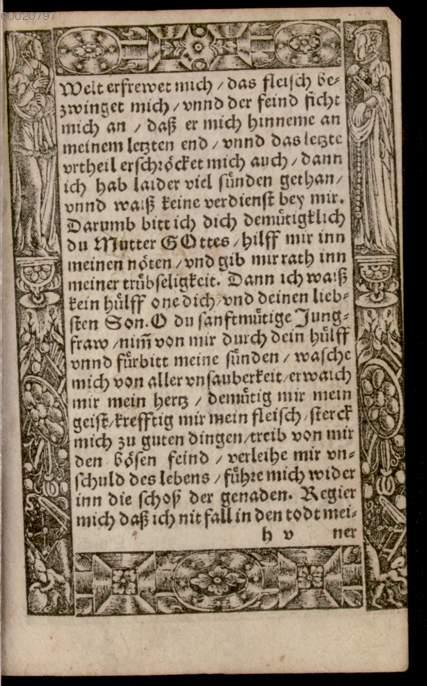 00020797
Welt erfrewet mich / das fleisch be-
zwinget mich / vnnd der feind ficht
mich an / daß er mich hinneme an
meinem letzten end / vnnd das letzte
vrtheil erschröcket mich auch / dann
ich hab laider viel sünden gethan /
vnnd waiß keine verdienst bey mir.
Darumb bitt ich dich demütigklich
du Mutter GOttes / hilff mir inn
meinen nöten / vnd gib mir rath inn
meiner trübseligkeit. Dann ich waiß
kein hülff one dich / vnd deinen lieb-
sten Son. O du sanfftmütige Jung-
fraw / nim̄ von mir durch dein hülff
vnnd fürbitt meine sünden / wasche
mich von aller vnsauberkeit / erwaich
mir mein hertz / demütig mir mein
geist / krefftig mir mein fleisch / sterck
mich zu guten dingen / treib von mir
den bösen feind / verleihe mir vn-
schuld des lebens / führe mich wider
inn die schoß der genaden. Regier
mich daß ich nit fall in den todt mei-
h v ner